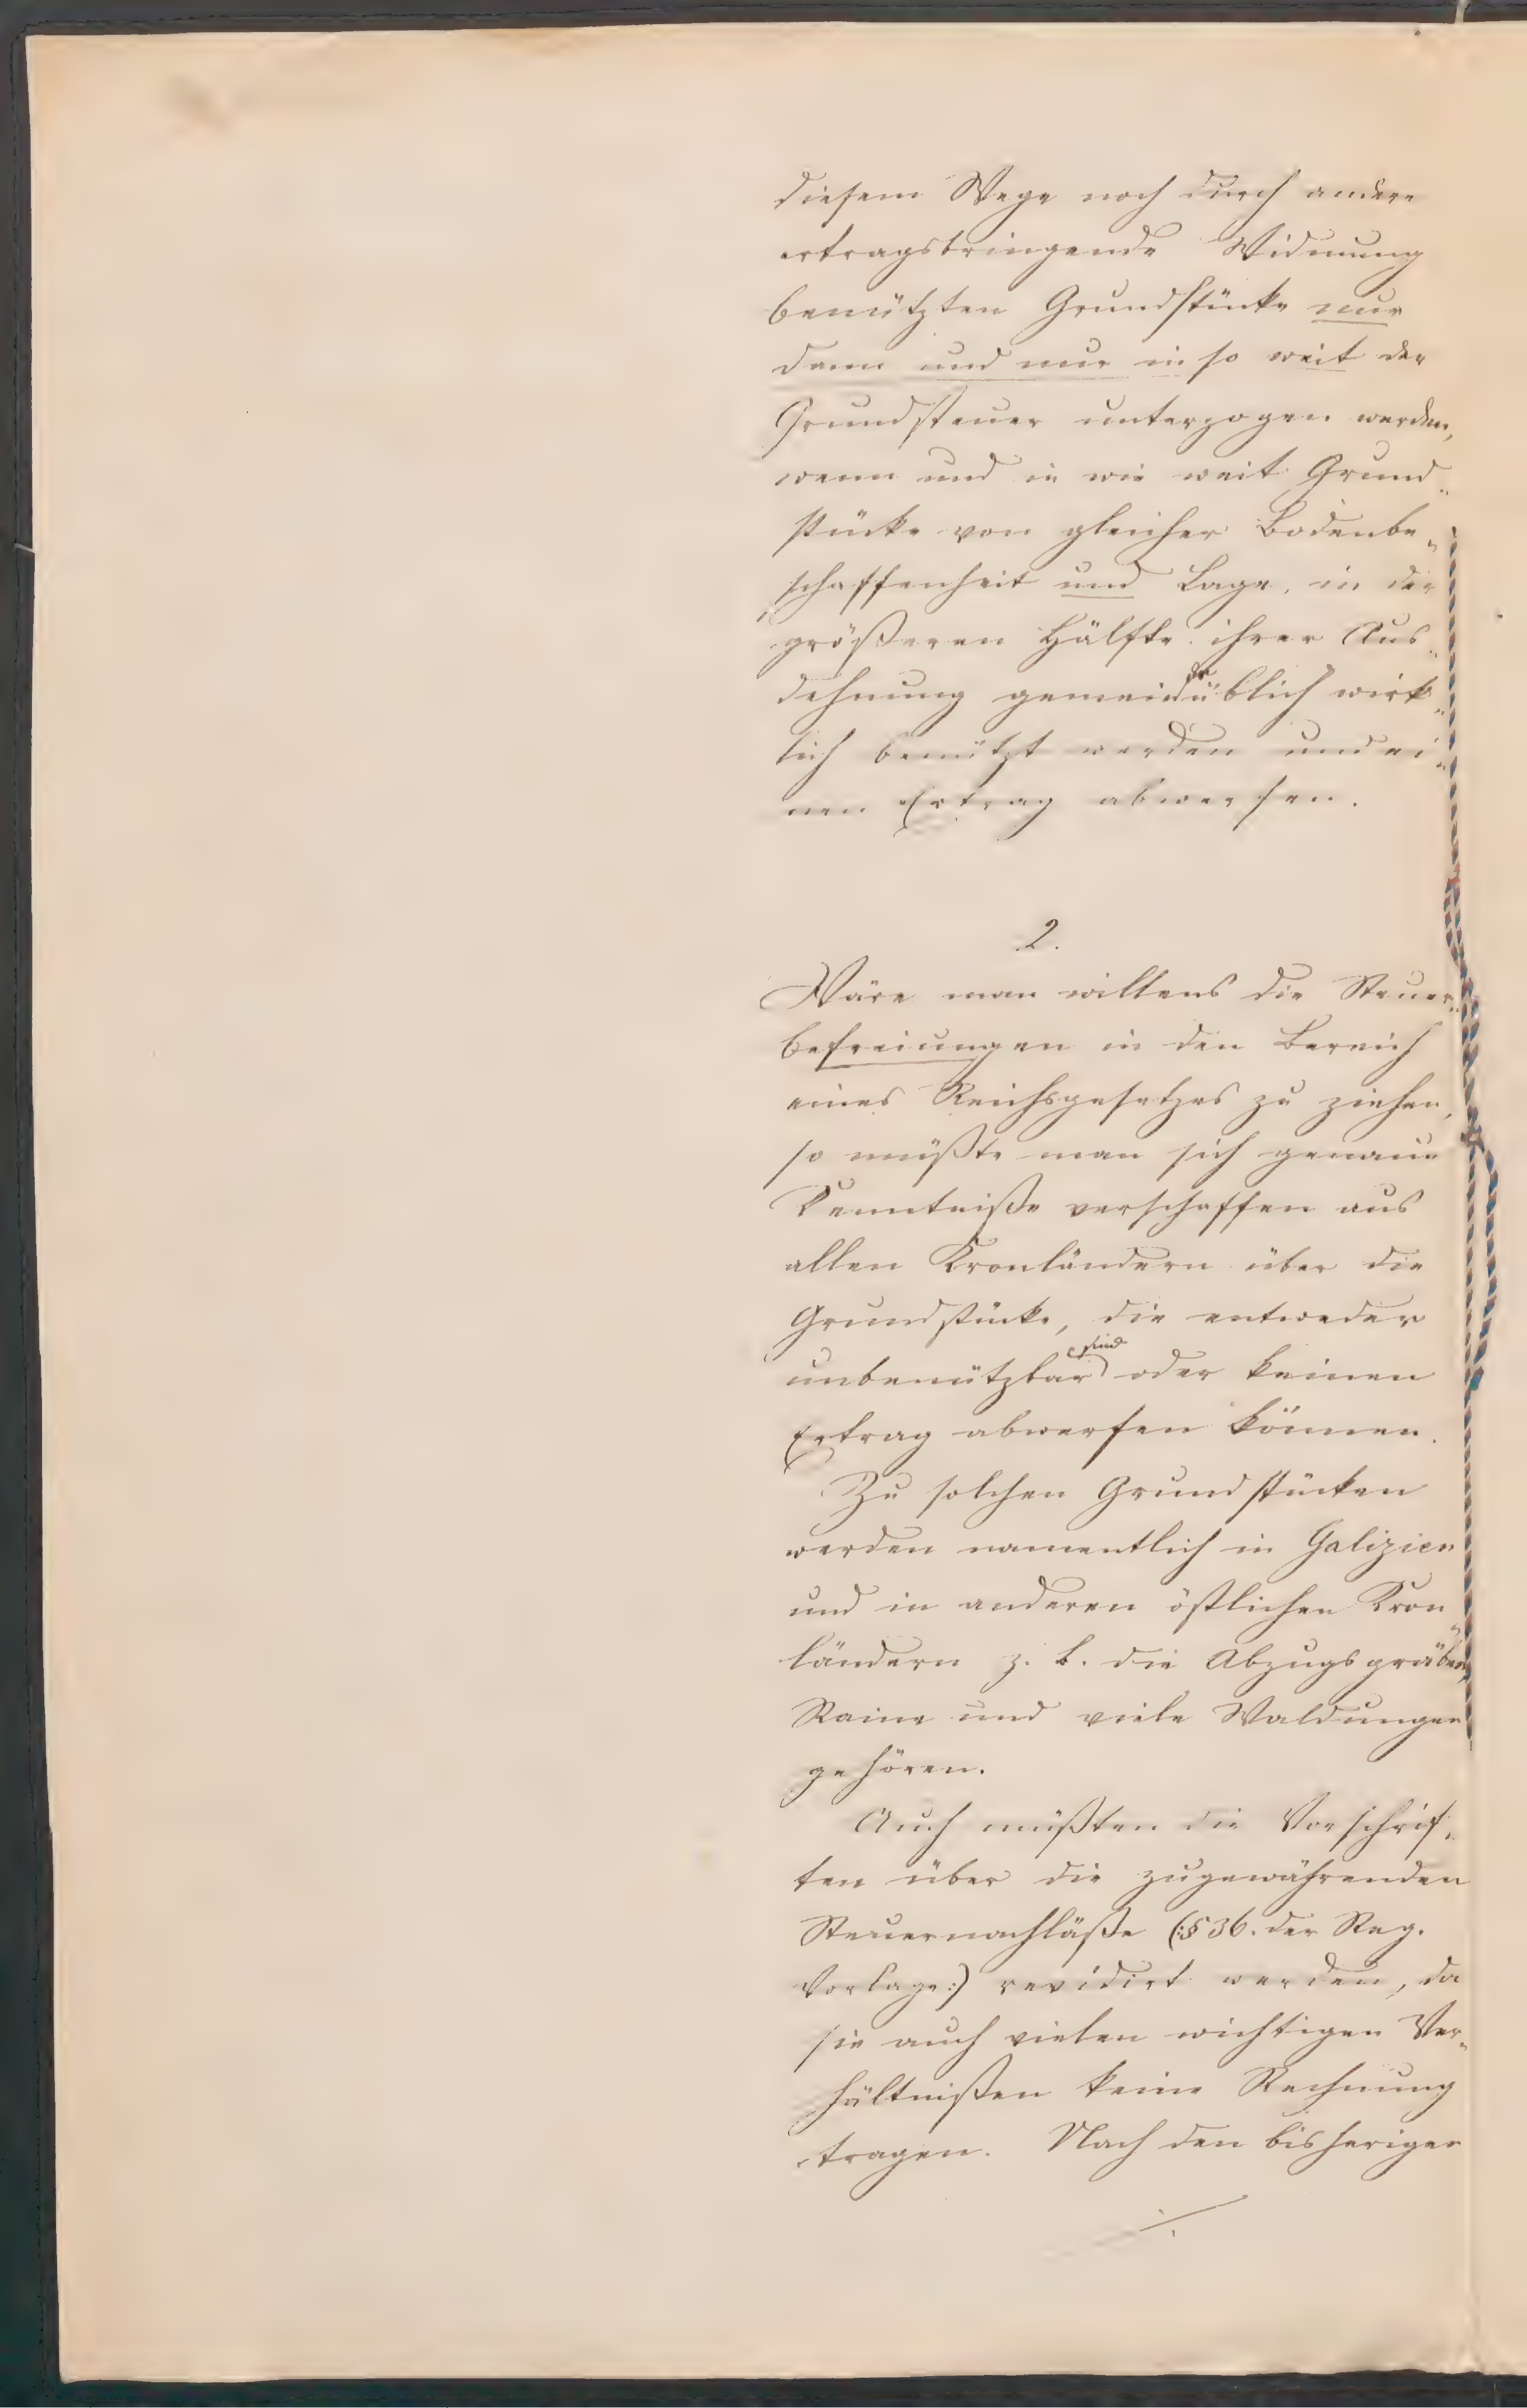 diesem Wege noch durch andere
ertragsbringende Widmung
benützten Grundstücke nur
dann und nur in so weit der
Grundsteuer unterzogen werden,
wenn und in wie weit Grund„
stücke von gleicher Bodenbe„
schaffenheit und Lage, in der
größeren Hälfte ihrer Aus„
dehnung gemeindeüblich wirk„
lich benützt werden und ei„
nen Ertrag abwerfen.
2.
Wäre man willens die Steuer„
befreiungen in den Bereich
eines Reichsgesetzes zu ziehen,
so müßte man sich genaue
Kenntniße verschaffen aus
allen Kronländern über die
Grundstücke, die entweder
unbenützbar sind oder keinen
Ertrag abwerfen können.
Zu solchen Grundstücken
werden namentlich in Galizien
und in anderen östlichen Kron„
ländern z. B. die Abzugsgräben,
Raine und viele Waldungen
gehören.
Auch müßten die Vorschrif„
ten über die zugewährenden
Steuernachläße (:§ 36. der Reg.
Vorlage:) revidirt werden, da
sie auch vielen wichtigen Ver„
hältnißen keine Rechnung
tragen. Nach den bisherigen
./.